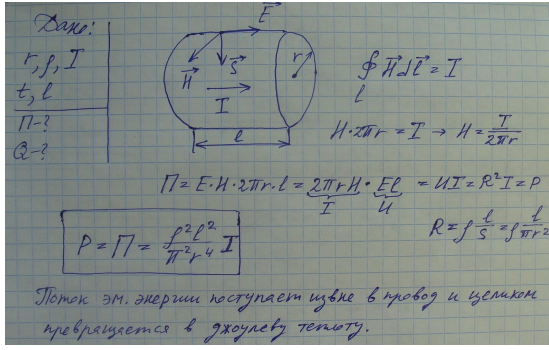 Дано:
r, ρ, I
t, l
П-?
Q-?
E⃗
H⃗
S⃗
I
r
l
∮ H⃗ dl⃗ = I
l
H·2πr = I → H = I/2πr
П = E·H·2πr·l = 2πrH · El = UI = R²I = P
I U
R = ρ l/S = ρ l/πr²
P = П = ρ²l²/π²r⁴ I
Поток эм. энергии поступает извне в провод и целиком
превращается в джоулеву теплоту.